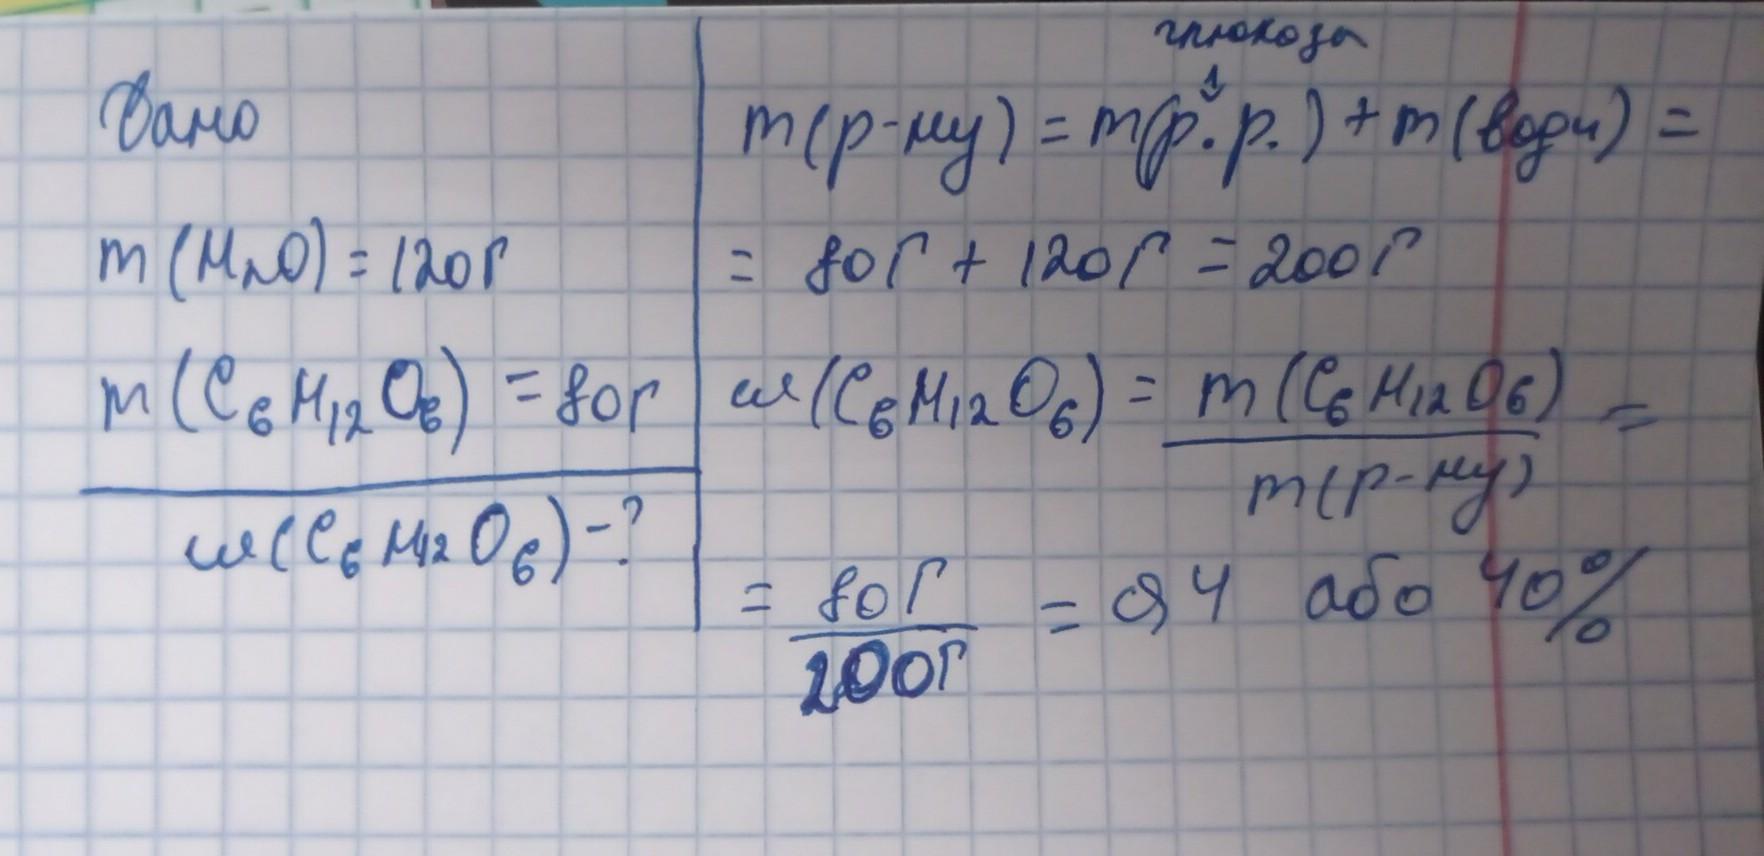 Дано
m(H₂O) = 120г
m(C₆H₁₂O₆) = 80г
w(C₆H₁₂O₆) - ?
глюкоза
m(р-ну) = m(р.р.) + m(води) =
= 80г + 120г = 200г
w(C₆H₁₂O₆) = m(C₆H₁₂O₆) =
m(р-ну)
= 80г = 0,4 або 40%
200г